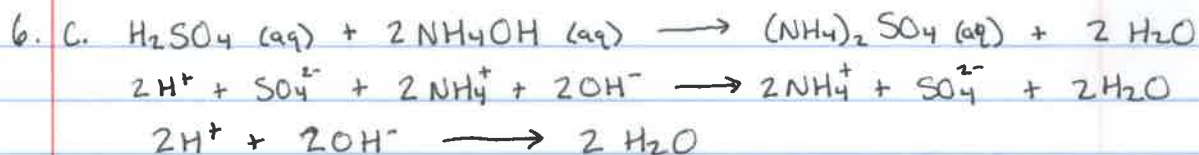 6. C. H₂SO₄ (aq) + 2 NH₄OH (aq) ⟶ (NH₄)₂ SO₄ (aq) + 2 H₂O
2H⁺ + SO₄²⁻ + 2 NH₄⁺ + 2OH⁻ ⟶ 2NH₄⁺ + SO₄²⁻ + 2H₂O
2H⁺ + 2OH⁻ ⟶ 2 H₂O